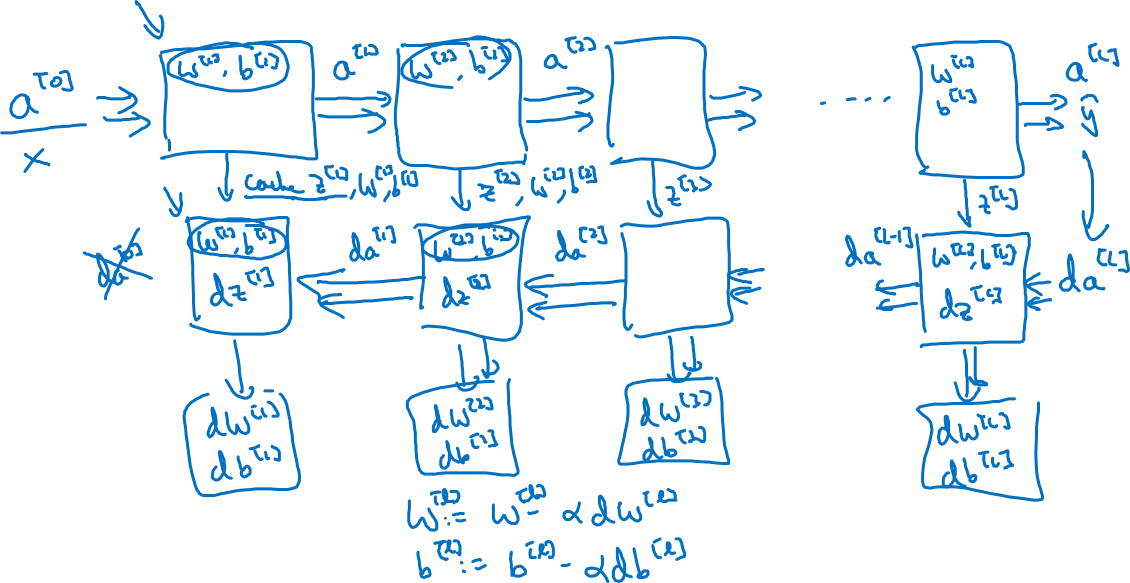 a^[0]
x
w^[1], b^[1]
a^[1]
w^[2], b^[1]
a^[2]
....
w^[L]
b^[L]
a^[L]
ŷ
cache z^[1], w^[1], b^[1]
z^[2], w^[2], b^[2]
z^[3]
z^[L]
da^[0]
w^[1], b^[1]
dz^[1]
da^[1]
w^[2], b^[2]
dz^[2]
da^[2]
da^[L-1]
w^[L], b^[L]
dz^[L]
da^[L]
dw^[1]
db^[1]
dw^[2]
db^[1]
dw^[3]
db^[2]
dw^[L]
db^[L]
w^[l] := w^[l] - αdw^[l]
b^[l] := b^[l] - αdb^[l]